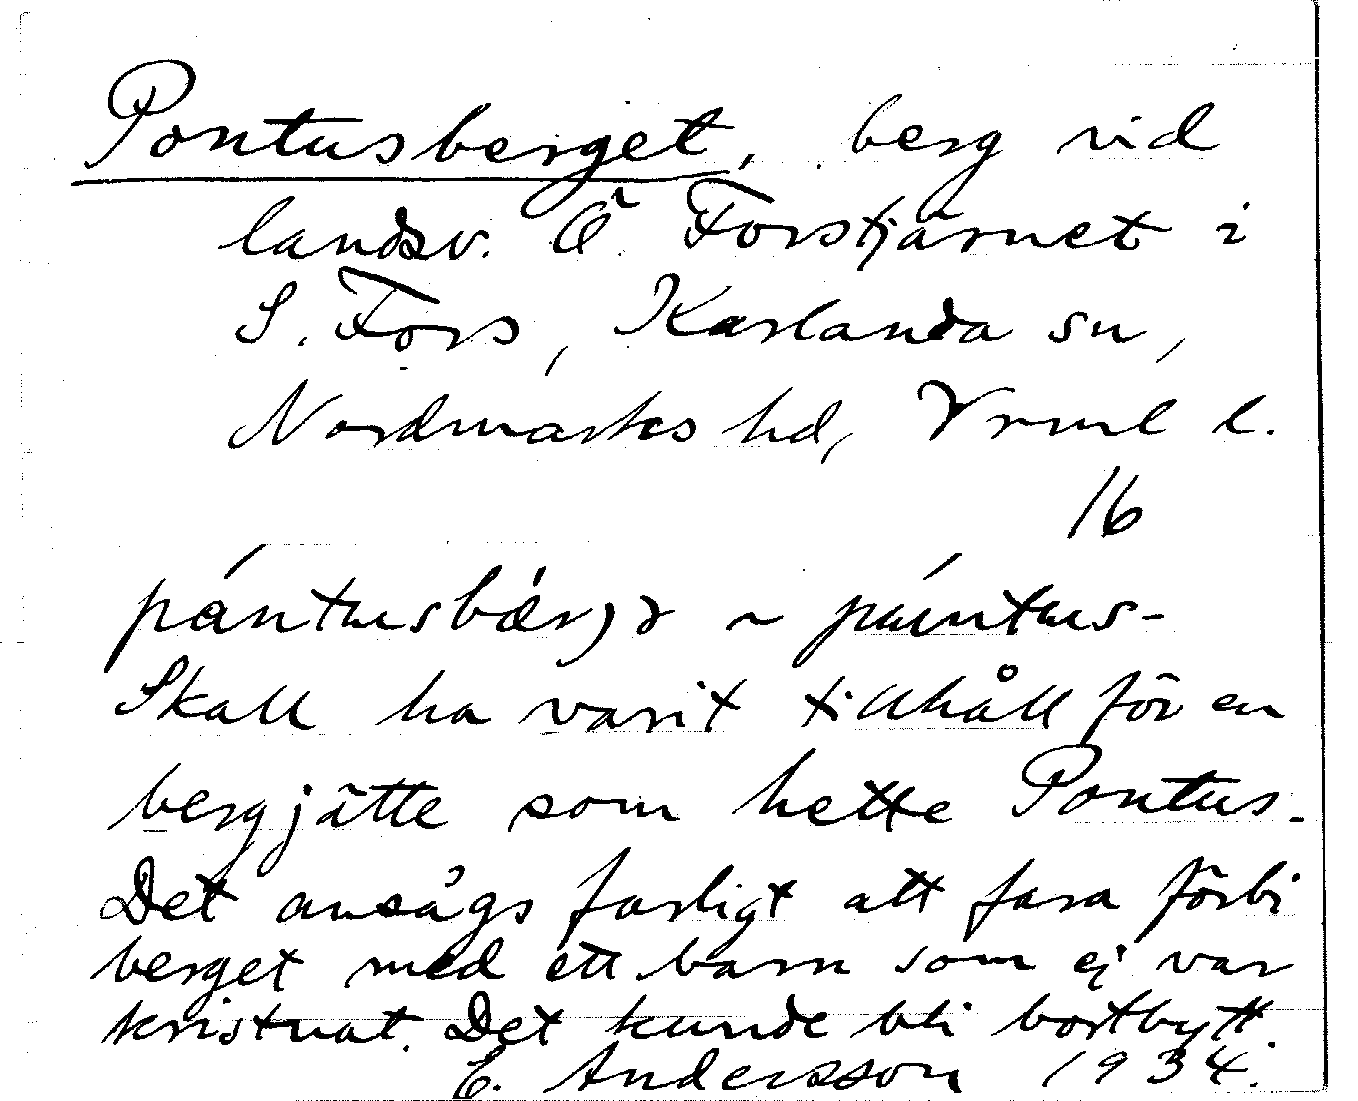 Pontusberget, berg vid
landsv. Ö Forstjärnet i
S. Fors, Karlanda sn,
Nordmarks hd, Vrml l.
16
Skall ha varit tillhåll för en
bergjätte som hette Pontus.
Det ansågs farligt att fara förbi
berget med ett barn som ej var
kristnat. Det kunde bli bortbytt.
E. Andersson 1934.